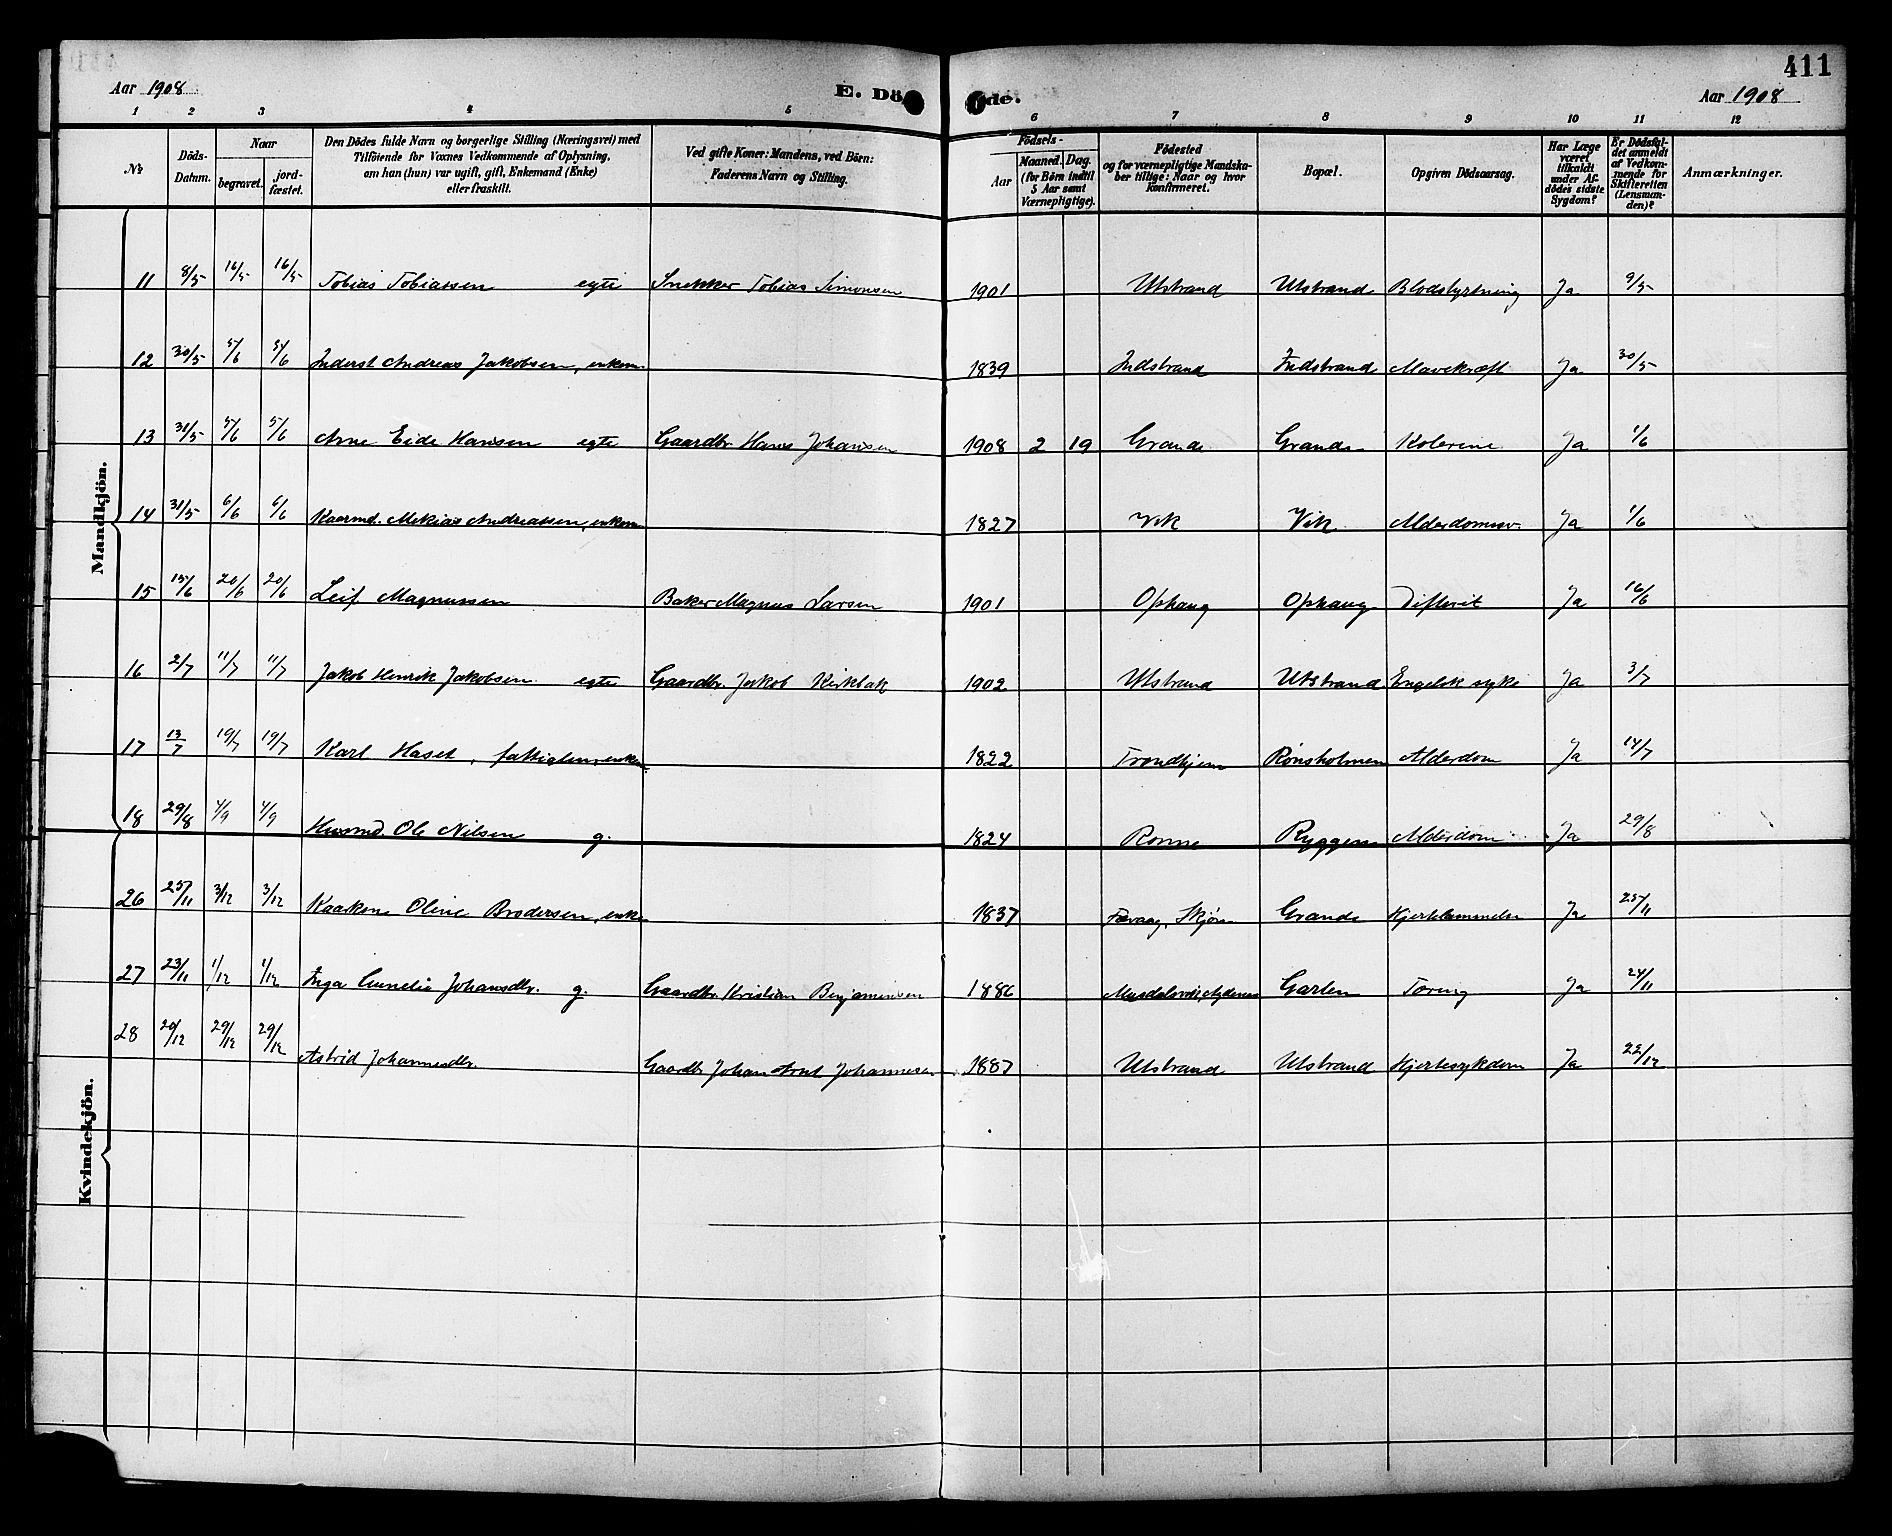 411
Aar 1908
E. Dö
de.
Aar 1908
1 2 3 4 5 6 7 8 9 10 11 12
№
Döds-Datum.
Naar
begravet.
jord-fæstet.
Den Dödes fulde Navn og borgerlige Stilling (Næringsvei) med
Tilföiende for Voxnes Vedkommende af Oplysning,
om han (hun) var ugift, gift, Enkemand (Enke)
eller fraskilt.
Ved gifte Koner: Mandens, ved Börn:
Faderens Navn og Stilling.
Födsels-
Aar
Maaned. Dag.
(for Börn indtil
5 Aar samt
Værnepligtige).
Födested
og for værnepligtige Mandska-
ber tillige: Naar og hvor
konfirmeret.
Bopæl.
Opgiven Dödsaarsag.
Har Læge
været
tilkaldt
under Af-
dödes sidste
Sygdom?
Er Dödsfal-
det anmeldt
af Vedkom-
mende for
Skifteretten
(Lensman-
den)?
Anmærkninger.
Mandkjön.
11 8/5 16/5 16/5 Tobias Tobiassen egte Snekker Tobias Simonsen 1901 Utstrand Utstrand Blodstyrtning Ja 9/5
12 30/5 5/6 5/6 Inderst Andreas Jakobsen, enkem. 1839 Indstrand Indstrand Mavekræft Ja 30/5
13 31/5 5/6 5/6 Arne Eide Hansen egte Gaardbr. Hans Johansen 1908 2 19 Grande Grande Kolerine Ja 1/6
14 31/5 6/6 6/6 Kaarmd. Mekias Andreassen, enkem 1827 Vik Vik Alderdomssv. Ja 1/6
15 15/6 20/6 20/6 Leif Magnussen Baker Magnus Larsen 1901 Ophaug Ophaug Difterit Ja 16/6
16 2/7 11/7 11/7 Jakob Henrik Jakobsen egte Gaardbr. Jakob Kirkbak 1902 Utstrand Utstrand Engelsk syke Ja 3/7
17 13/7 19/7 19/7 Karl Haset, fattiglem, enkem. 1822 Trondhjem Rønsholmen Alderdom Ja 14/7
18 29/8 4/9 4/9 Husmd. Ole Nilsen g. 1824 Rønne Ryggen Alderdom Ja 29/8
Kvindekjön.
26 25/11 3/12 3/12 Oline Brodersen, enke 1837 Skjørn Grande Hjertelammelse Ja 25/11
27 23/11 1/12 1/12 Inga Johansdtr. g. Gaardbr. Kristian Benjaminsen 1886 Garten Tæring Ja 24/11
28 20/12 29/12 29/12 Astrid Johannesdtr. Gaardbr. Johan Arnt Johannesen 1887 Utstrand Utstrand Hjertesykdom Ja 22/12